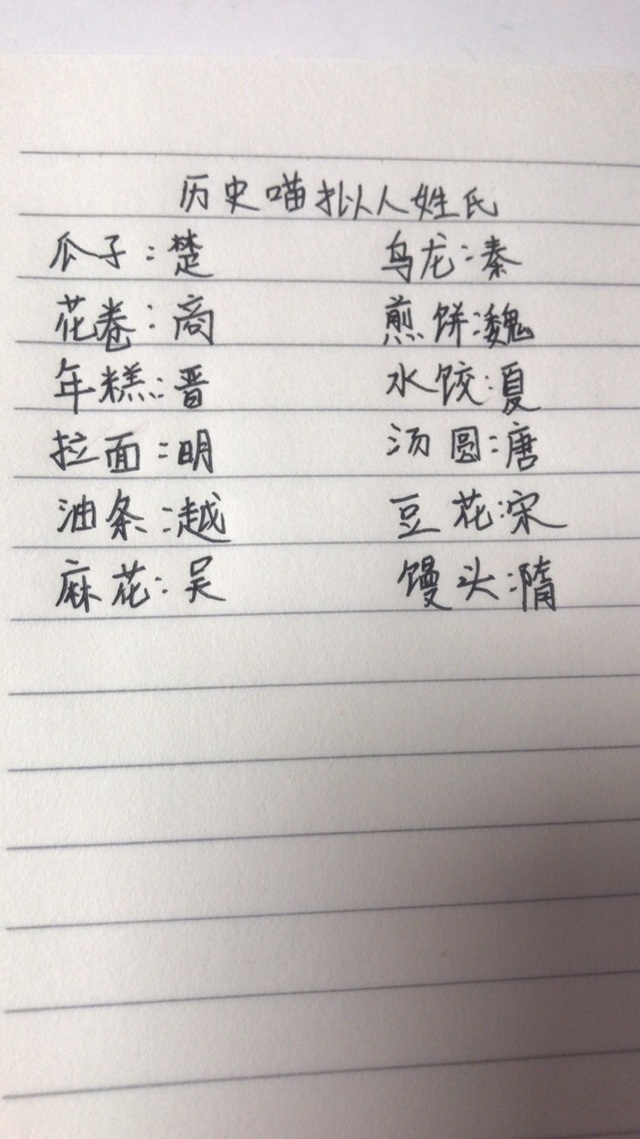 历史喵拟人姓氏
瓜子：楚 乌龙：秦
花卷：商 煎饼：魏
年糕：晋 水饺：夏
拉面：明 汤圆：唐
油条：越 豆花：宋
麻花：吴 馒头：隋